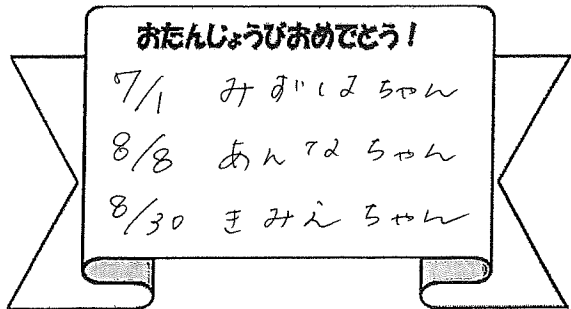 おたんじょうびおめでとう!
7/1 みずほちゃん
8/8 あんなちゃん
8/30 きみえちゃん